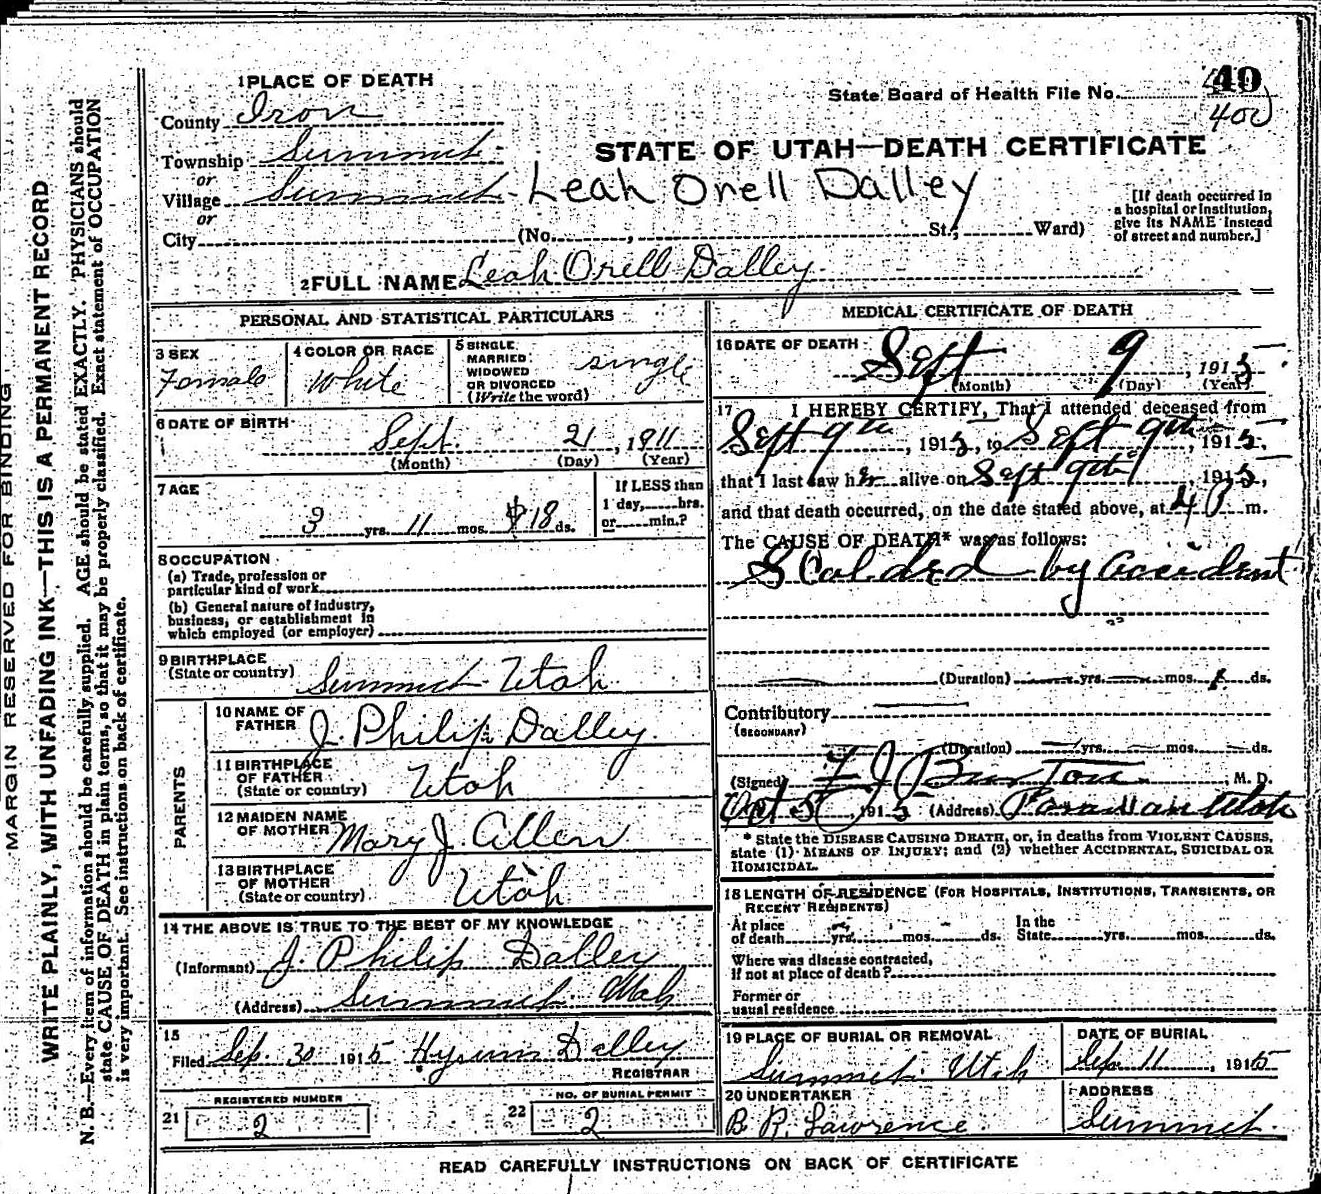 MARGIN RESERVED FOR BINDING
WRITE PLAINLY, WITH UNFADING INK—THIS IS A PERMANENT RECORD
N. B.—Every item of information should be carefully supplied. AGE should be stated EXACTLY. PHYSICIANS should
state CAUSE OF DEATH in plain terms, so that it may be properly classified. Exact statement of OCCUPATION
is very important. See instructions on back of certificate.
1 PLACE OF DEATH
State Board of Health File No. 40
400
County Iron
STATE OF UTAH—DEATH CERTIFICATE
Township Summit
or
Village Summit Leah Orell Dalley
or
City (No. , St.; Ward)
[If death occurred in
a hospital or institution,
give its NAME instead
of street and number.]
2 FULL NAME Leah Orell Dalley
PERSONAL AND STATISTICAL PARTICULARS
3 SEX
Female
4 COLOR OR RACE
White
5 SINGLE
MARRIED
WIDOWED
OR DIVORCED
(Write the word)
single
6 DATE OF BIRTH
Sept. 21, 1911
(Month) (Day) (Year)
7 AGE
3 yrs. 11 mos. 18 ds.
If LESS than
1 day, hrs.
or min.?
8 OCCUPATION
(a) Trade, profession or
particular kind of work
(b) General nature of industry,
business, or establishment in
which employed (or employer)
9 BIRTHPLACE
(State or country) Summit Utah
PARENTS
10 NAME OF
FATHER J. Philip Dalley
11 BIRTHPLACE
OF FATHER
(State or country) Utah
12 MAIDEN NAME
OF MOTHER Mary J. Allen
13 BIRTHPLACE
OF MOTHER
(State or country) Utah
14 THE ABOVE IS TRUE TO THE BEST OF MY KNOWLEDGE
(Informant) J. Philip Dalley
(Address) Summit Utah
15
Filed Sep. 30 1915 Hyrum Dalley
REGISTRAR
21 REGISTERED NUMBER
2
22 NO. OF BURIAL PERMIT
2
MEDICAL CERTIFICATE OF DEATH
16 DATE OF DEATH
Sept 9, 1915
(Month) (Day) (Year)
17 I HEREBY CERTIFY, That I attended deceased from
Sept 9th, 1915, to Sept 9th, 1915,
that I last saw her alive on Sept 9th, 1915,
and that death occurred, on the date stated above, at 4 P m.
The CAUSE OF DEATH* was as follows:
Scalded by accident
(Duration) yrs. mos. ds.
Contributory
(SECONDARY)
(Duration) yrs. mos. ds.
(Signed) Burton, M. D.
Oct 5, 1915 (Address) Parowan Utah
* State the DISEASE CAUSING DEATH, or, in deaths from VIOLENT CAUSES,
state (1) MEANS OF INJURY; and (2) whether ACCIDENTAL, SUICIDAL OR
HOMICIDAL.
18 LENGTH OF RESIDENCE (FOR HOSPITALS, INSTITUTIONS, TRANSIENTS, OR
RECENT RESIDENTS)
At place
of death yrs. mos. ds.
In the
State yrs. mos. ds.
Where was disease contracted,
if not at place of death?
Former or
usual residence
19 PLACE OF BURIAL OR REMOVAL
Summit Utah
DATE OF BURIAL
Sep. 11, 1915
20 UNDERTAKER
B. R. Lawrence
ADDRESS
Summit
READ CAREFULLY INSTRUCTIONS ON BACK OF CERTIFICATE